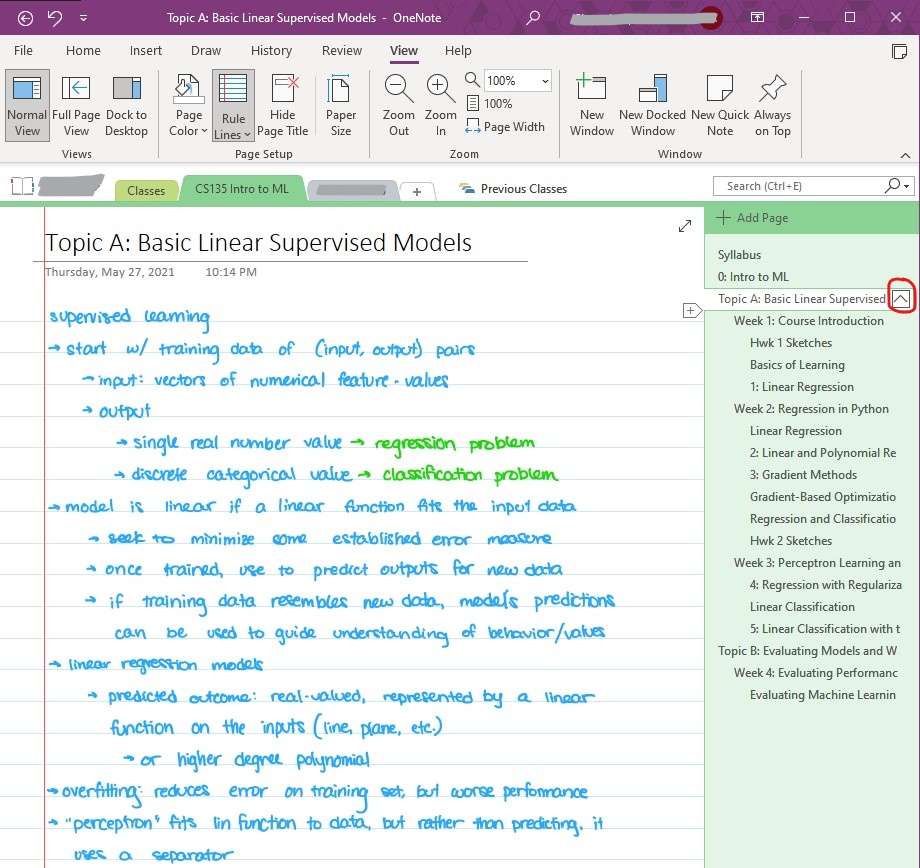 Topic A: Basic Linear Supervised Models - OneNote
File Home Insert Draw History Review View Help
Normal View
Full Page View
Dock to Desktop
Page Color
Rule Lines
Hide Page Title
Paper Size
Zoom Out
Zoom In
100%
100%
Page Width
New Window
New Docked Window
New Quick Note
Always on Top
Views Page Setup Zoom Window
Classes CS135 Intro to ML + Previous Classes Search (Ctrl+E)
Topic A: Basic Linear Supervised Models
Thursday, May 27, 2021 10:14 PM
supervised learning
→ start w/ training data of (input, output) pairs
→ input: vectors of numerical feature-values
→ output
→ single real number value → regression problem
→ discrete categorical value → classification problem
→ model is linear if a linear function fits the input data
→ seek to minimize some established error measure
→ once trained, use to predict outputs for new data
→ if training data resembles new data, model's predictions
can be used to guide understanding of behavior/values
→ linear regression models
→ predicted outcome: real-valued, represented by a linear
function on the inputs (line, plane, etc.)
→ or higher degree polynomial
→ overfitting: reduces error on training set, but worse performance
→ "perceptron" fits lin function to data, but rather than predicting, it
uses a separator
+ Add Page
Syllabus
0: Intro to ML
Topic A: Basic Linear Supervised
Week 1: Course Introduction
Hwk 1 Sketches
Basics of Learning
1: Linear Regression
Week 2: Regression in Python
Linear Regression
2: Linear and Polynomial Re
3: Gradient Methods
Gradient-Based Optimizatio
Regression and Classificatio
Hwk 2 Sketches
Week 3: Perceptron Learning an
4: Regression with Regulariza
Linear Classification
5: Linear Classification with t
Topic B: Evaluating Models and W
Week 4: Evaluating Performanc
Evaluating Machine Learnin